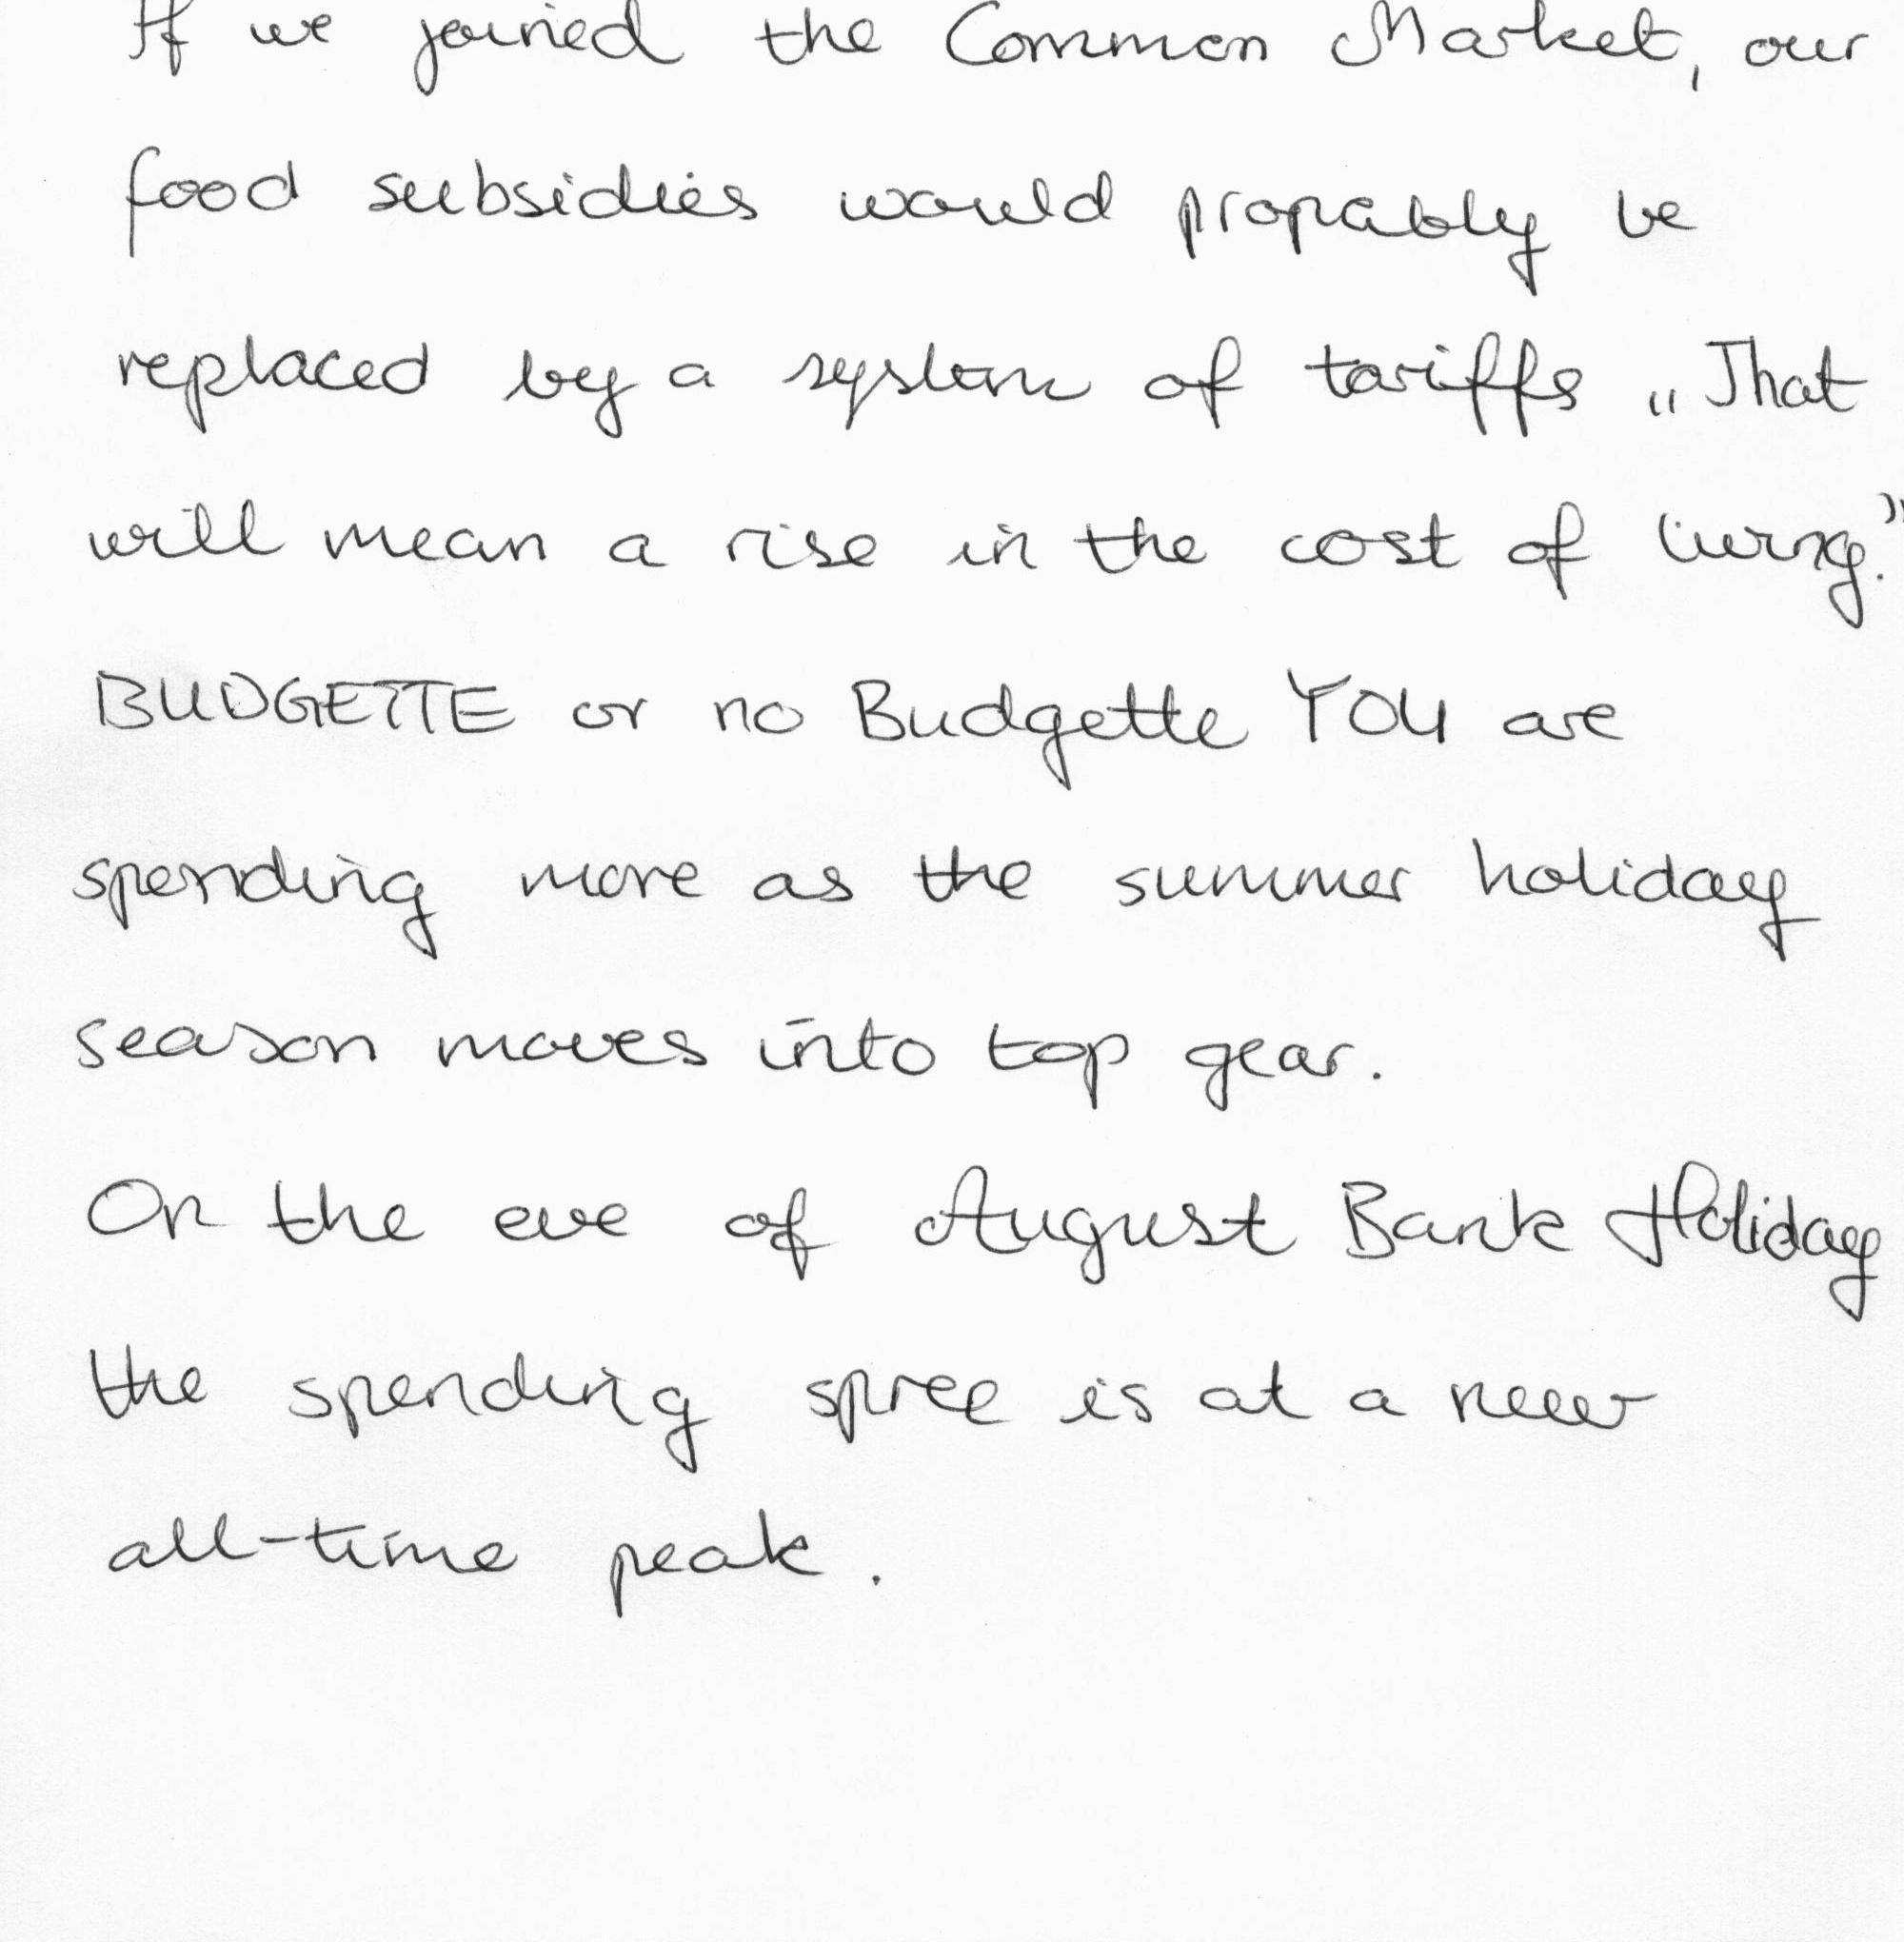 If we joined the Common Market, our
food subsidies would propably be
replaced by a system of tariffs „That
will mean a rise in the cost of living."
BUDGETTE or no Budgette YOU are
spending more as the summer holiday
season moves into top gear.
On the eve of August Bank Holiday
the spending spree is at a new
all-time peak.